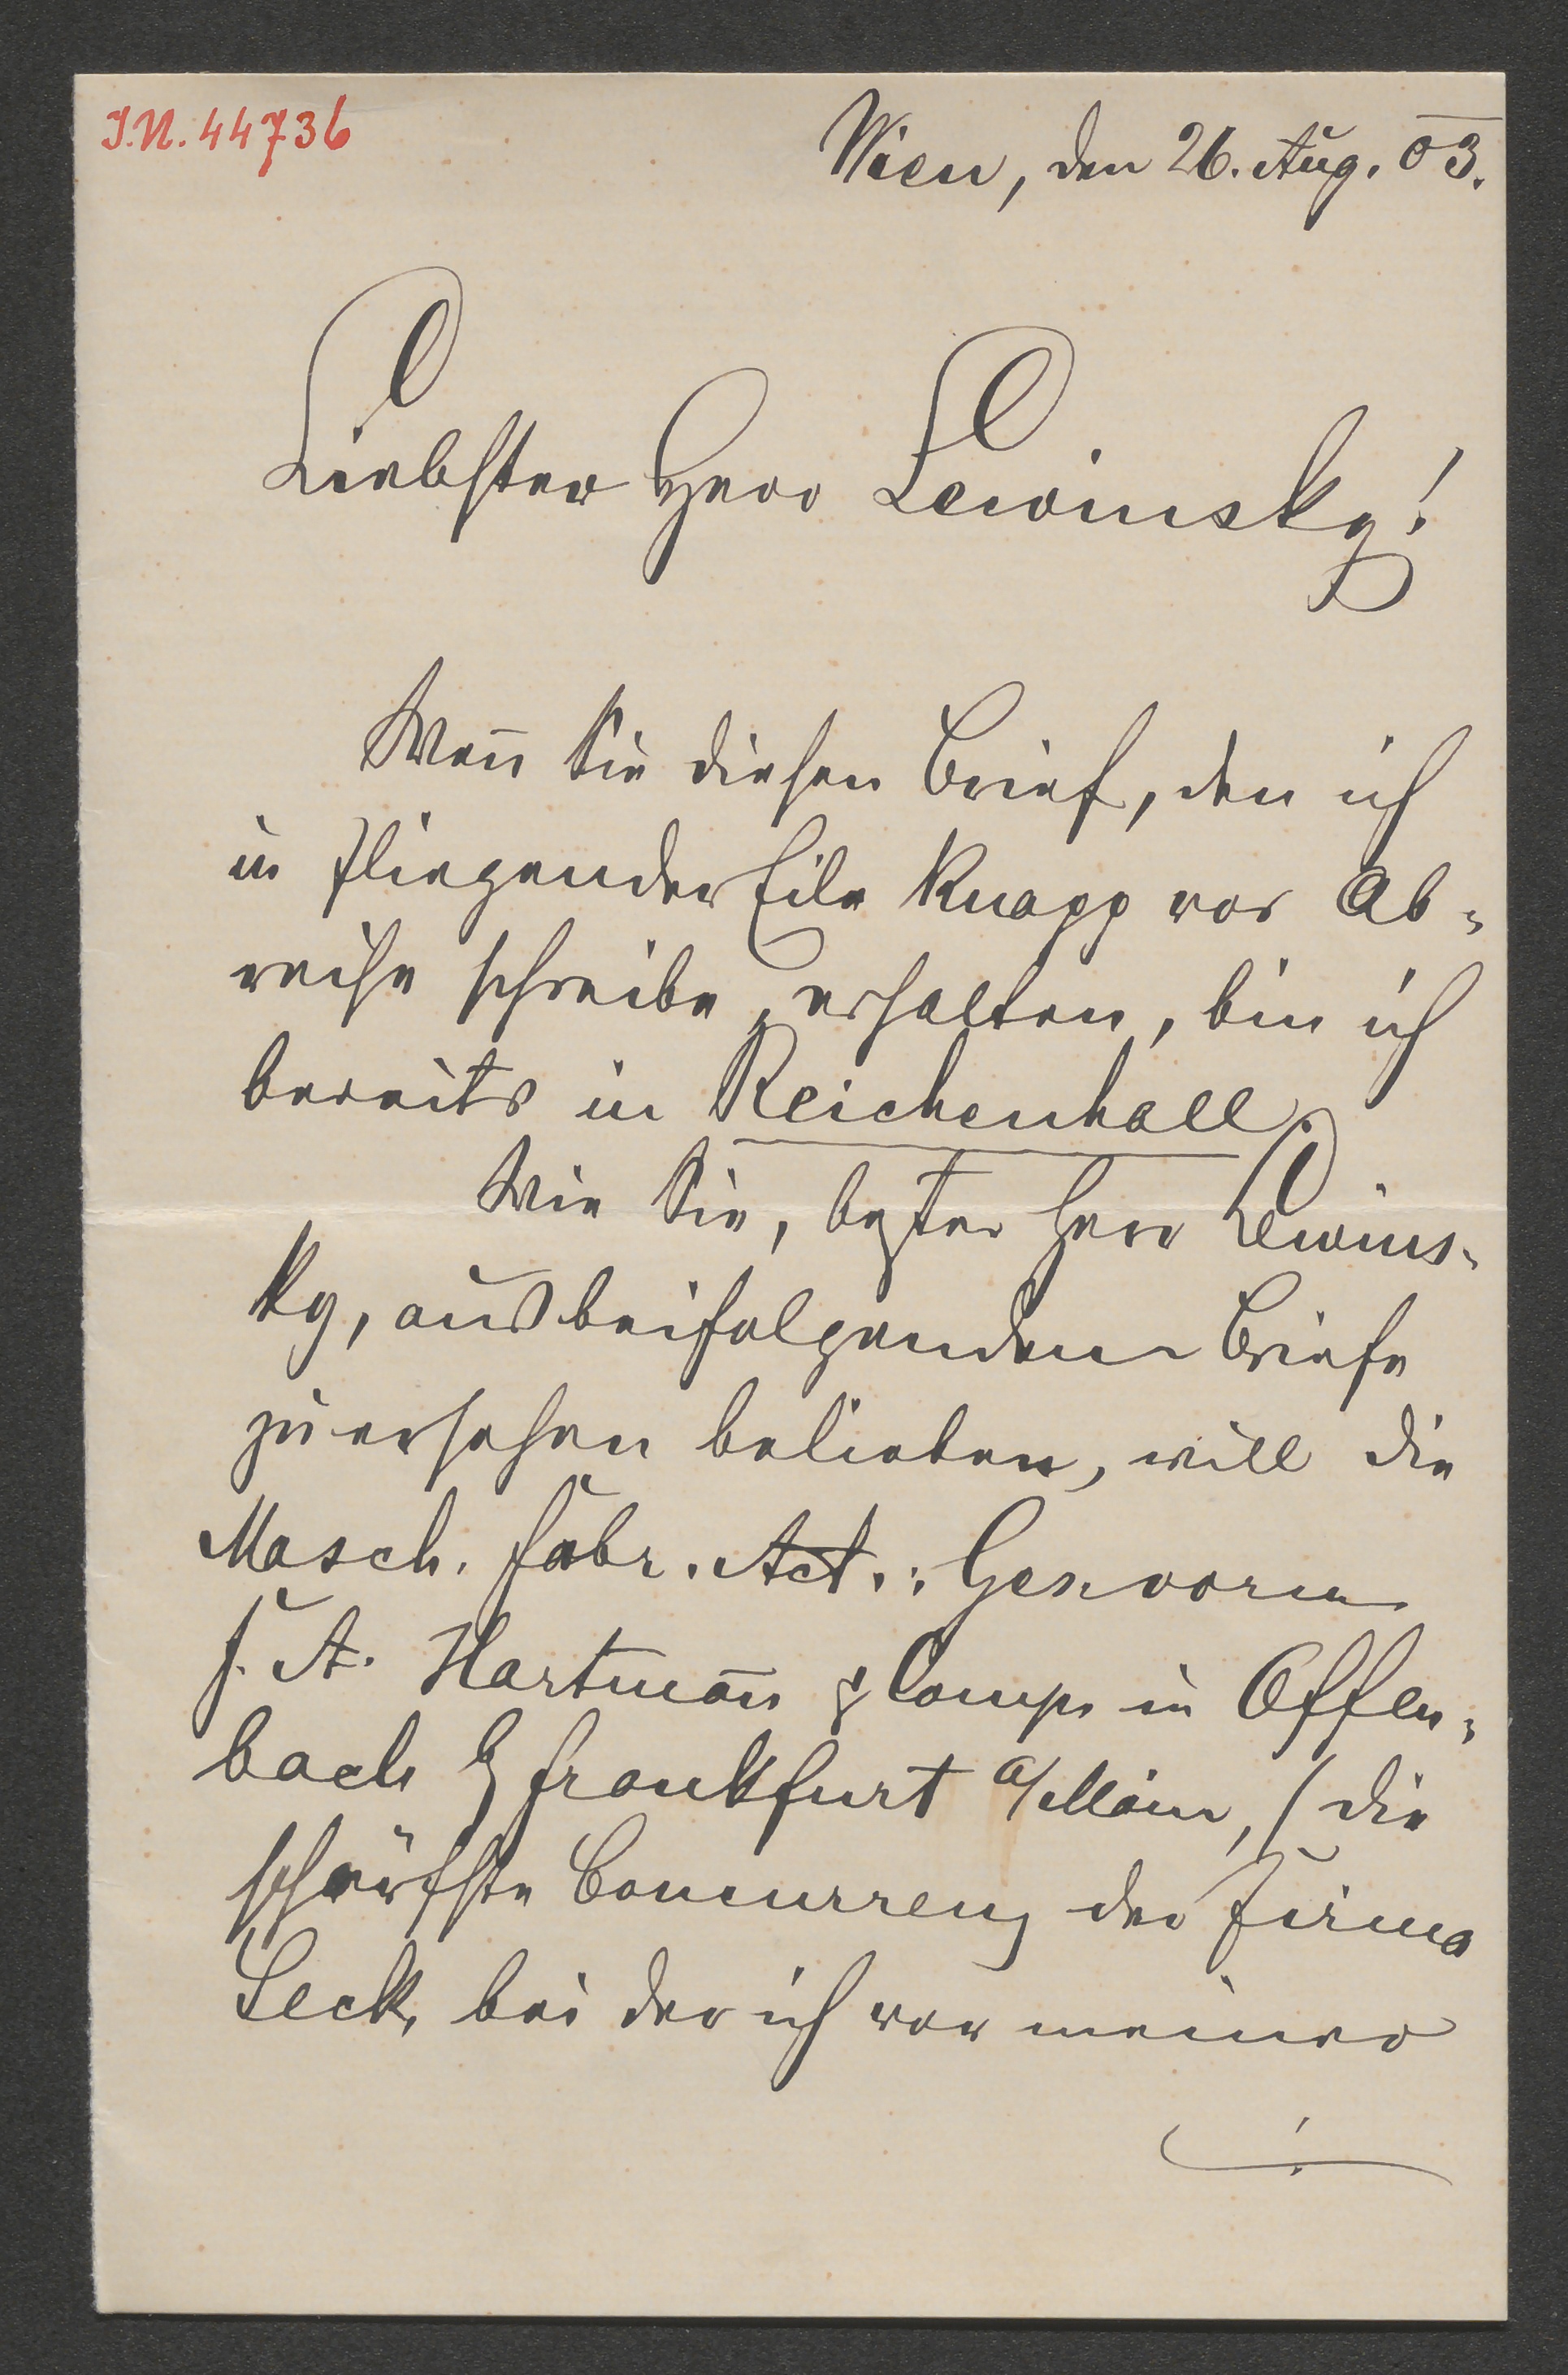 I.N. 44736
Wien, den 26. Aug. 03.
Liebster Herr Lewinsky!
Weñ Sie diesen Brief, den ich
in fliegender Eile knapp vor Ab=
reise schreibe, erhalten, bin ich
bereits in Reichenhall.
Wie Sie, bester Herr Lewins=
ky, aus beifolgendem Briefe
zu ersehen belieben, will die
Masch. Fabr. Act.: Ges. vorm
F. A. Hartmañ & Comp. in Offen=
bach Frankfurt a/Main, (die
schärfste Concurrenz der Firma
Seck, bei der ich vor meiner